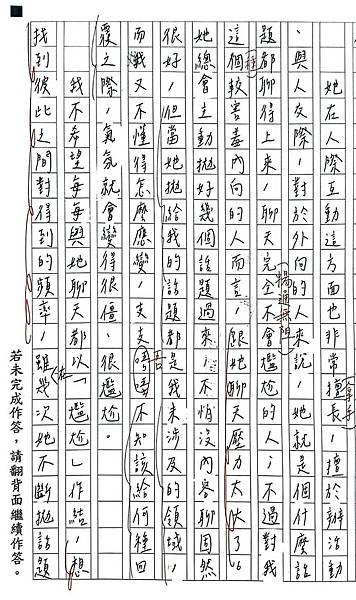 她在人際互動這方面也非常擅長於辦活動
拿手
、與人交際，對於外向的人來說，她就是個什麼話
題都聊得上來，聊天完全不會尷尬，不過對我
暢通無阻
這個較害羞內向的人而言，跟她聊天的壓力太大了。
種
她總會主動拋好幾個話題過來，不怕沒內容聊固然
很好，但當她拋給我的話題都是我未涉及的領域，
而我又不懂得怎麼應變，支支唔唔不知該給何種回
吾
覆之際，氣氛就會變得很僵、很尷尬。
我不希望每每與她聊天都以「尷尬」作結，想
找到彼此之間對得到的頻率，雖幾次她不斷拋話題
若未完成作答，請翻背面繼續作答。